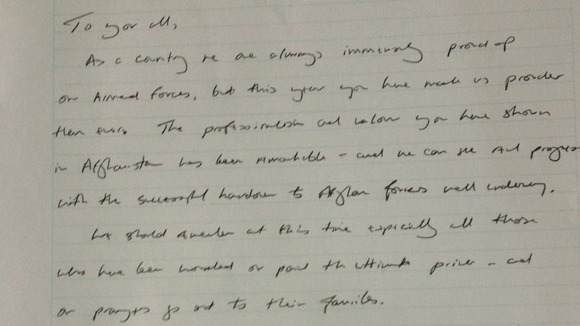 To you all,
As a country we are always immensely proud of
our Armed Forces, but this year you have made us prouder
than ever. The professionalism and valour you have shown
in Afghanistan has been remarkable - and we can see real progress
with the successful handover to Afghan forces well underway.
We should remember at this time especially all those
who have been wounded or paid the ultimate price - and
our prayers go out to their families.